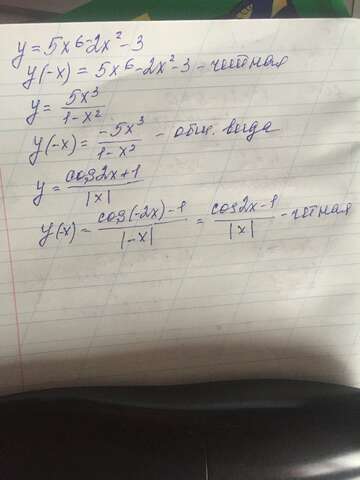 y = 5x⁶ - 2x² - 3
y(-x) = 5x⁶ - 2x² - 3 - четная
y = 5x³/(1-x²)
y(-x) = -5x³/(1-x²) - общ. вида
y = (cos2x+1)/|x|
y(-x) = (cos(-2x)-1)/|-x| = (cos2x-1)/|x| - четная